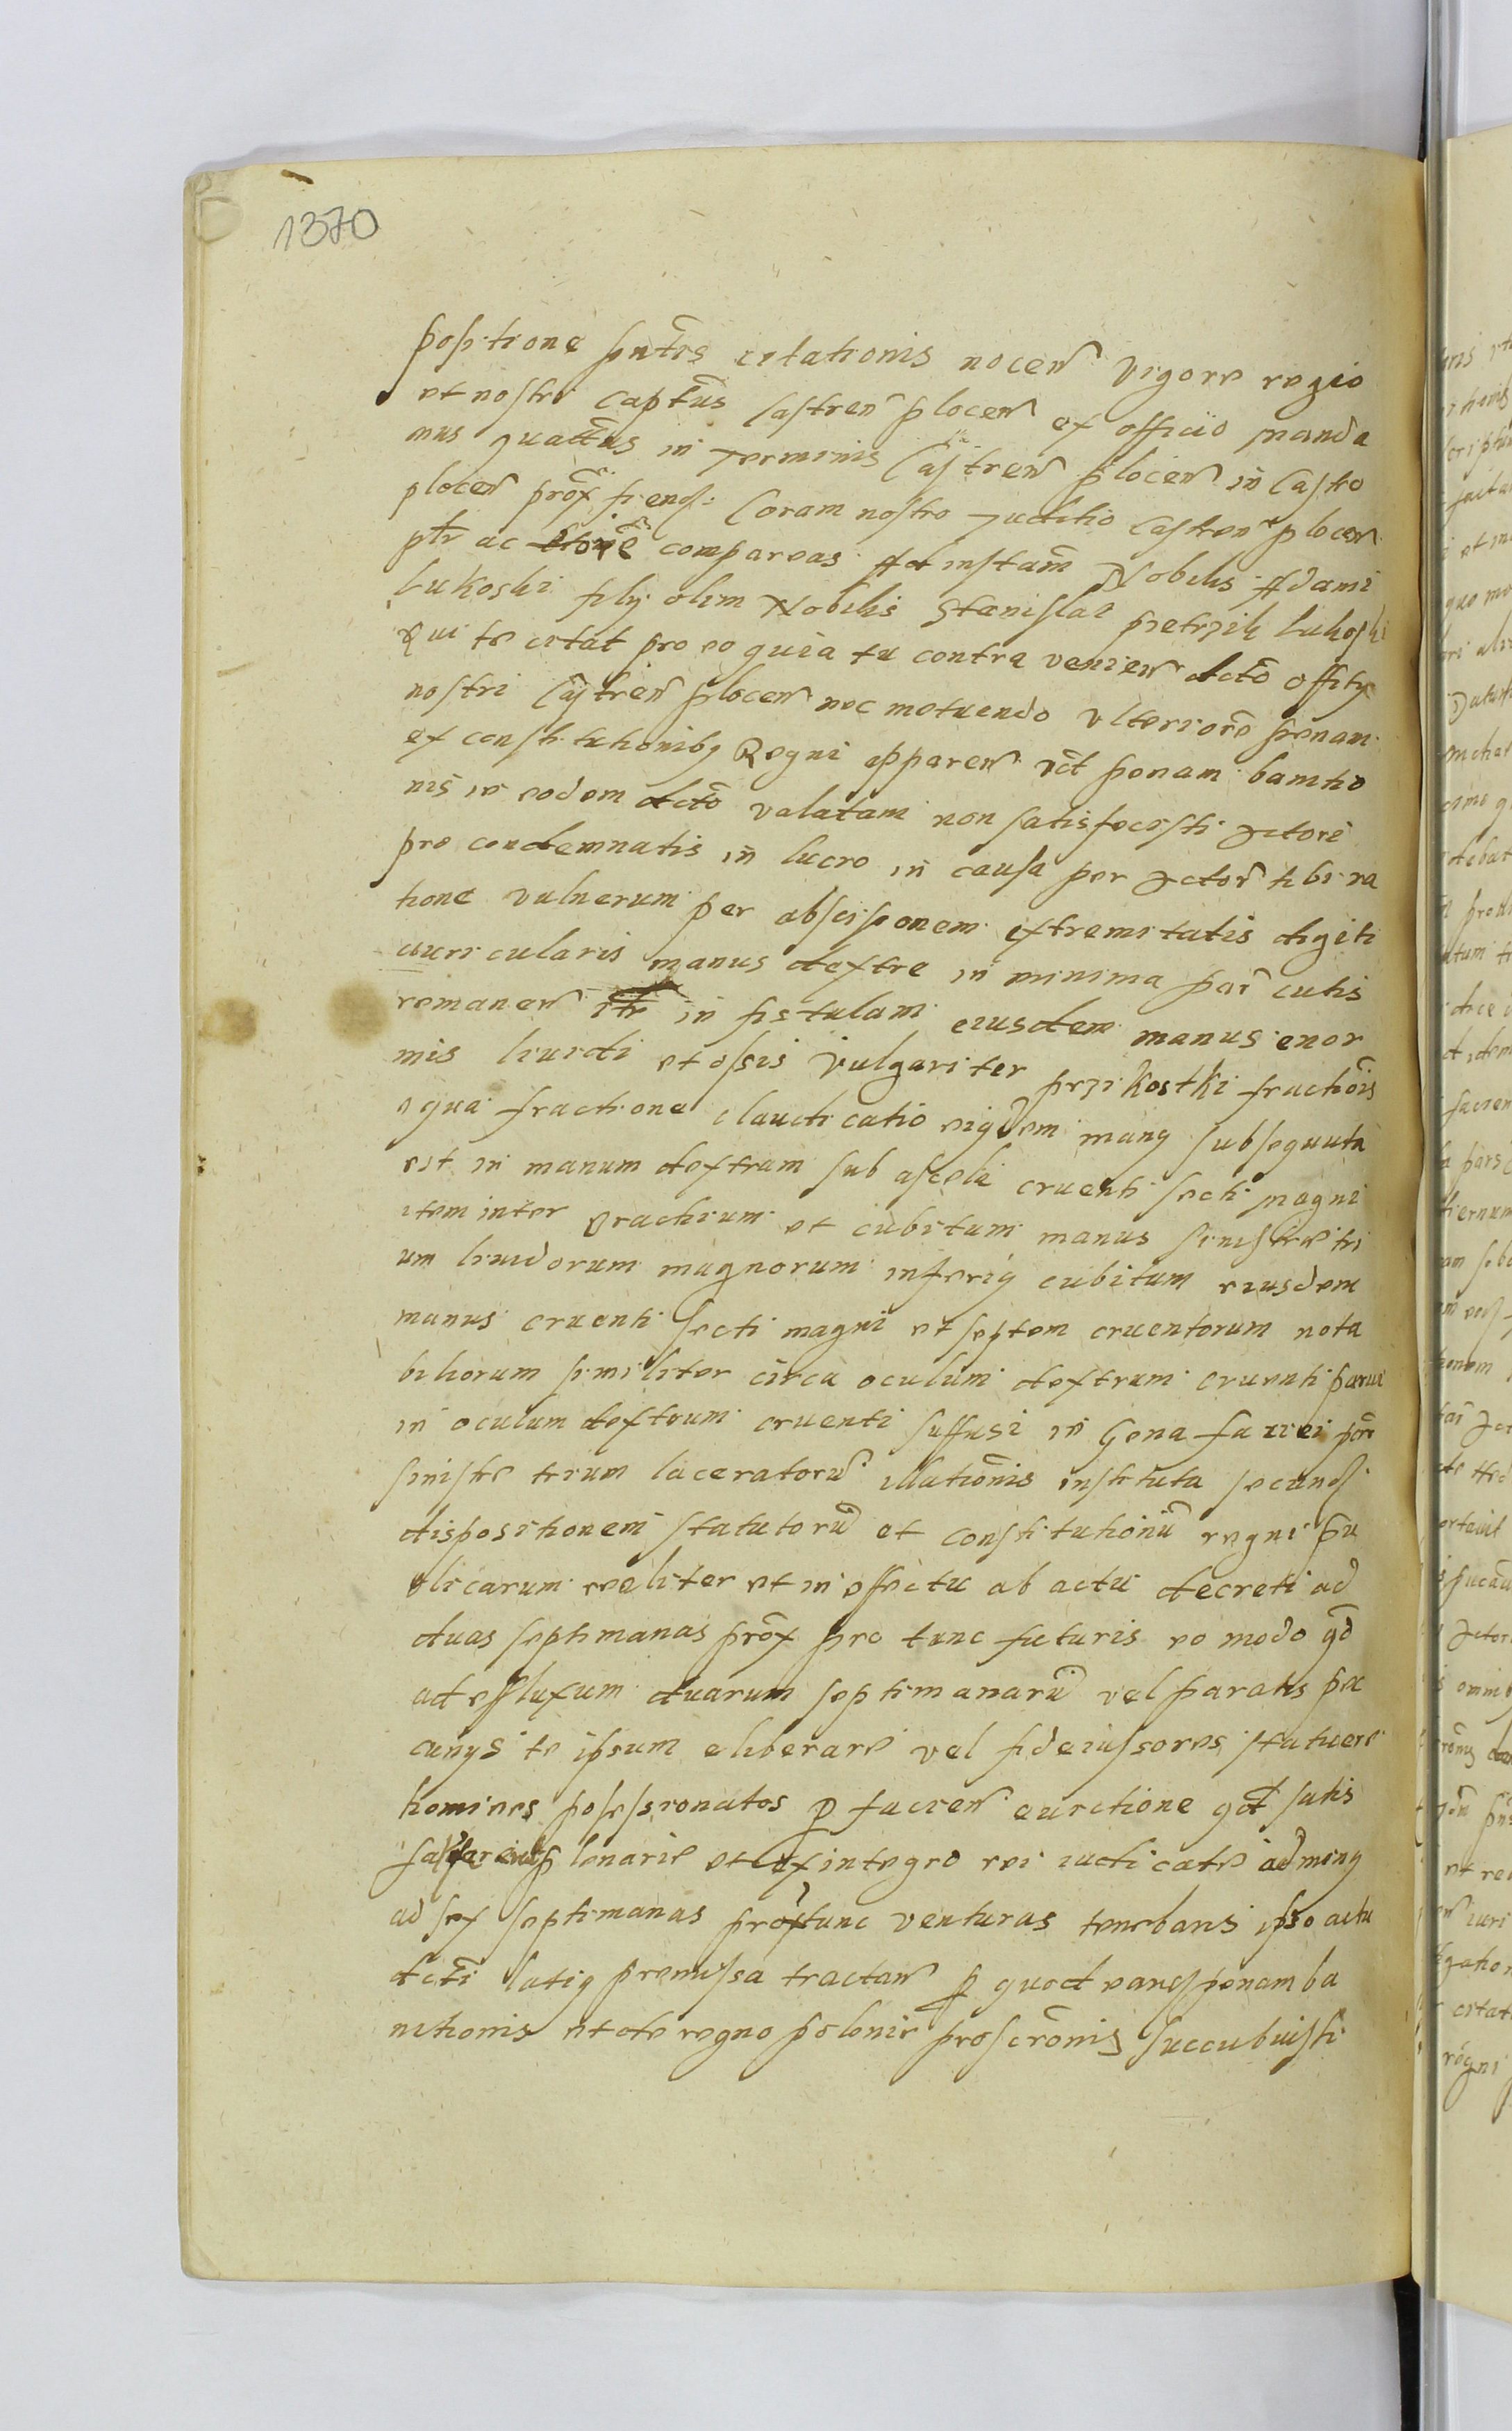 1370
positione pñtis citationis nocen̄ vigore regio
et nostri captũs castren̄ plocen̄ ex officio manda
mus quatt̃us in terminis Castren̄ plocen̄ in Castro
plocen̄ prõx fiend. Coram nostro Juditio castren̄ plocen̄
ptr ac compareas Ad instam̄ Nobilis Adami
Lukoski filÿ olim Nobilis Stanislai pietrzik lukoski
Qui te citat pro eo quia tu contra venien̄ dctõ offitÿ
nostri Castren̄ plocen̄ nec metuendo ulteriorẽ penam
ex constitutionibʒ Regni apparen̄ vĩt penam banitio
nis in eodem dctõ valatam non satisfecisti Actorẽ
pro condemnatis in lucro in causa per Actor̄ tibi ra
tione vulnerum per abscisionem extremitatis digiti
auricularis manus dextre in minima par̄ cutis
remanen̄ in fistulam eiusdem manus enor
mis liuidi et ossis vulgariter przikostki fractiõis
equa fractione claudicatio eiꝰdem manꝰ subsequuta
est in manum dextram sub ascela cruenti secti magni
item inter brachium et cubitum manus sinistre tri
um liuidorum magnorum inferiꝰ cubitum eiusdem
manus cruenti secti magni et septem cruentorum nota
biliorum similiter circa oculum dextrum cruenti parui
in oculum dextrum cruenti suffusi in Gena faciei
sinistre trium laceratorũ illatiõnis instituta secund.
dispositionem statutorũ et constitutionũ regni pu
blicarum realiter et in effectu ab actu decreti ad
duas septimanas prõx pro tunc futuris eo modo qd̃
ad effluxum duarum septimanarũ vel paratis pe
cunÿs te ipsum eliberare vel fideiussores statuere
homines possessionatos ꝑ facien̄ euictione qd̃ satis
plenarie et ex integro rei iudicate ad minꝰ
ad sex septimanas prõxtunc venturas tenebaris ipso actu
dctĩ latiꝰ premissa tractan̄ ꝑ quod eand. penam ba
nitionis et de regno polonie proscrõnis succubuisti